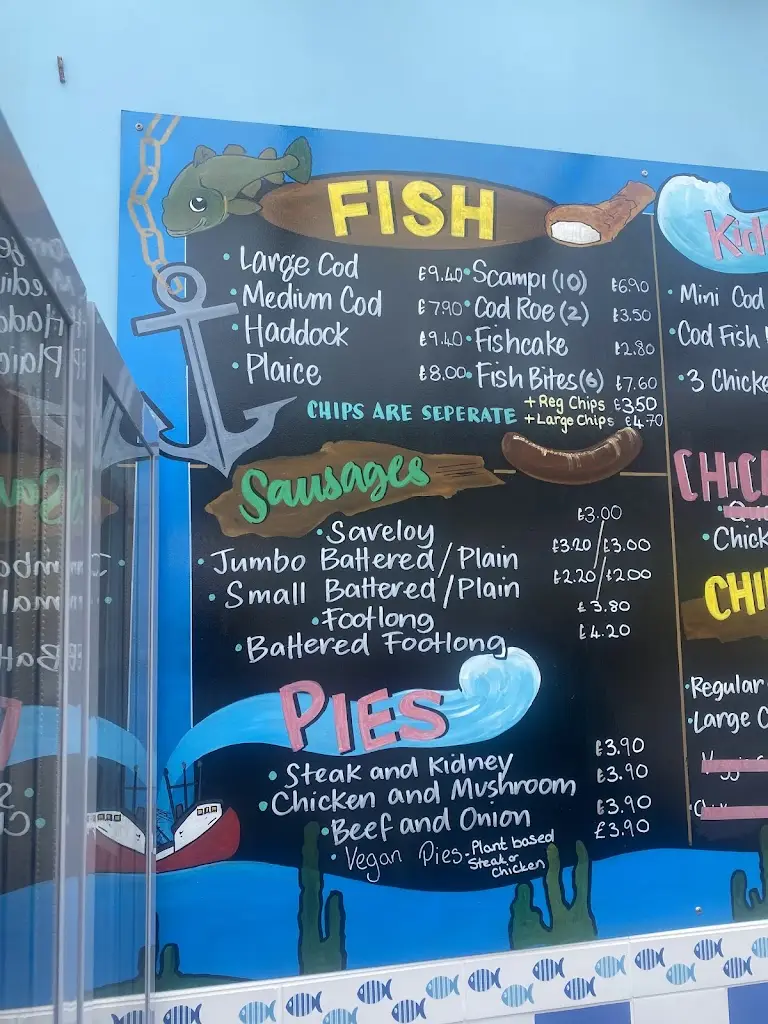 FISH
• Large Cod £9.40
• Medium Cod £7.90
• Haddock £9.40
• Plaice £8.00
• Scampi (10) £6.90
• Cod Roe (2) £3.50
• Fishcake £2.80
• Fish Bites (6) £7.60
CHIPS ARE SEPERATE
+ Reg Chips £3.50
+ Large Chips £4.70
Sausages
• Saveloy £3.00
• Jumbo Battered / Plain £3.20 / £3.00
• Small Battered / Plain £2.20 / £2.00
• Footlong £3.80
• Battered Footlong £4.20
PIES
• Steak and Kidney £3.90
• Chicken and Mushroom £3.90
• Beef and Onion £3.90
• Vegan Pies. Plant based £3.90
Steak or
Chicken
Kid
• Mini Cod
• Cod Fish
• 3 Chicke
CHIC
• Chick
CHI
• Regular
• Large C